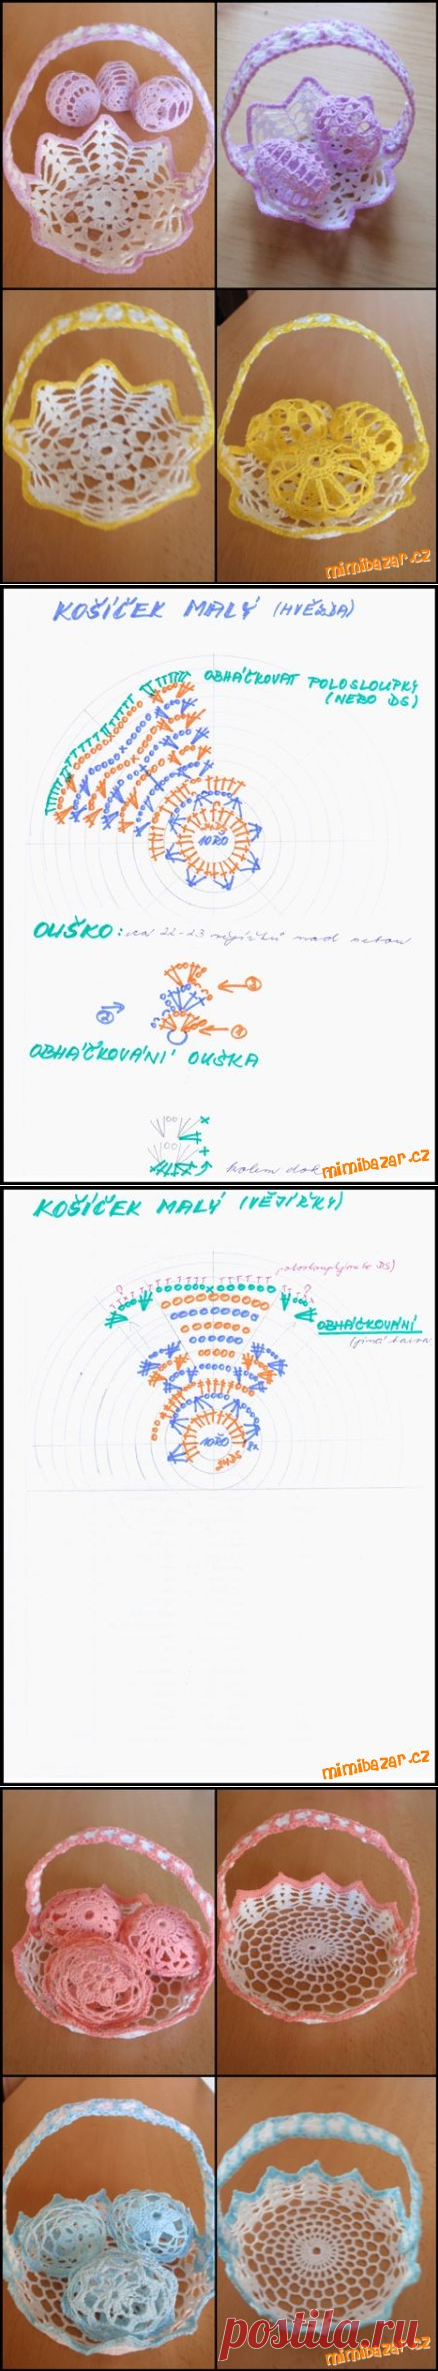 mimibazar.cz
KOŠÍČEK MALÝ (HVĚZDA)
OBHÁČKOVAT POLOSLOUPKY
(NEBO DS)
24DS
10ŘO
OUŠKO: ca 22-23 nad sebou
③
②
①
OBHÁČKOVÁNÍ OUŠKA
kolem dok
mimibazar.cz
KOŠÍČEK MALÝ (VĚJÍŘKY)
polosloupky nebo DS)
OBHÁČKOVÁNÍ
(jiná barva
10ŘO
24DS
mimibazar.cz
postila.ru
mimibazar.cz